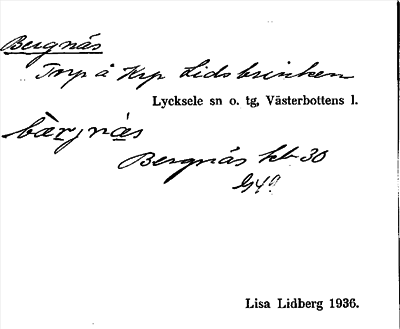 Bergnäs
Torp å Krp Lidsbrinken
Lycksele sn o. tg, Västerbottens l.
Bergnäs hb 30
Lisa Lidberg 1936.